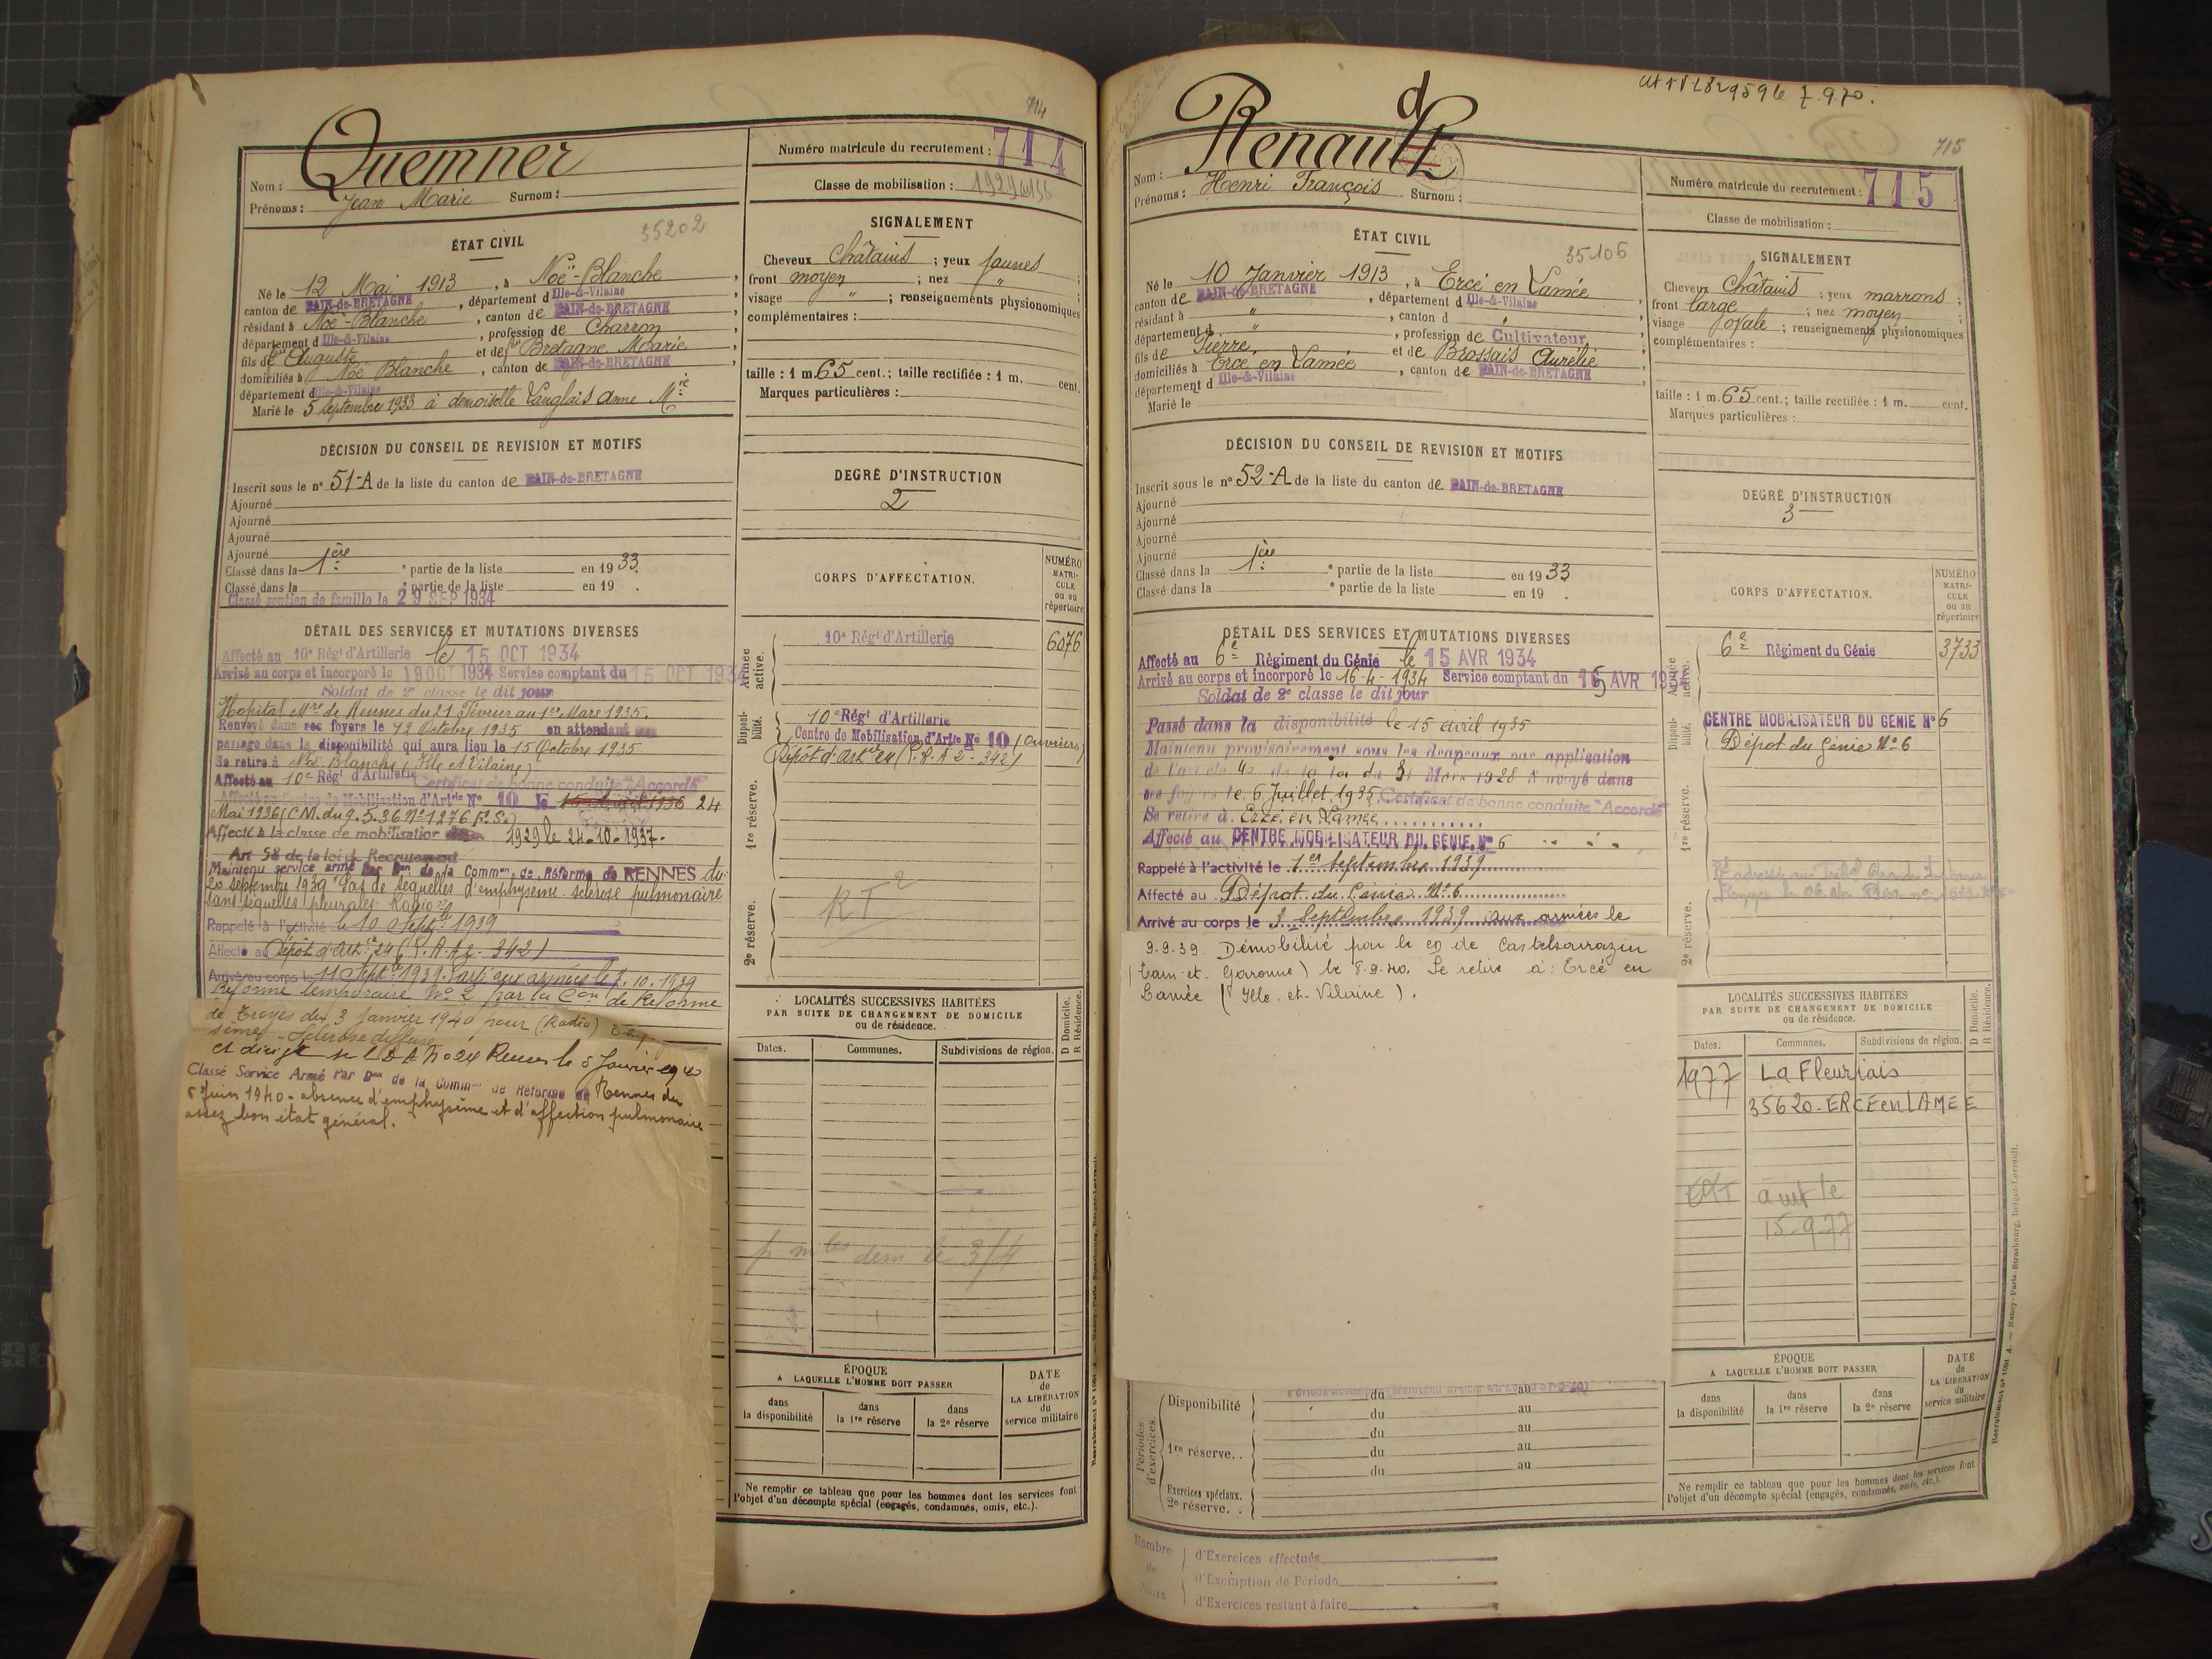 714
Quemner
Nom :
Prénoms : Jean Marie Surnom :
Numéro matricule du recrutement : 714
Classe de mobilisation : 1929
ÉTAT CIVIL
35202
Né le 12 Mai 1913, à Noë-Blanche,
canton de BAIN-de-BRETAGNE, département d Ille-&-Vilaine
résidant à Noë-Blanche, canton de BAIN-de-BRETAGNE
département d Ille-&-Vilaine, profession de Charron,
fils de Auguste et de Bretagne Marie,
domiciliés à Noë Blanche, canton de BAIN-de-BRETAGNE,
département d Ille-&-Vilaine
Marié le 5 septembre 1933 à demoiselle Langlais Anne Mie
SIGNALEMENT
Cheveux Châtains ; yeux jaunes ;
front moyen ; nez " ;
visage " ; renseignements physionomiques
complémentaires :
taille : 1 m. 65 cent.; taille rectifiée : 1 m. cent.
Marques particulières :
DÉCISION DU CONSEIL DE REVISION ET MOTIFS
Inscrit sous le n° 51-A de la liste du canton de BAIN-de-BRETAGNE
Ajourné
Ajourné
Ajourné
Ajourné
Classé dans la 1ère partie de la liste en 1933.
Classé dans la e partie de la liste en 19 .
Classé soutien de famille le 29 SEP 1934
DEGRÉ D'INSTRUCTION
2
CORPS D'AFFECTATION.
NUMÉRO MATRICULE ou au répertoire
Armée active.
10e Régt d'Artillerie 6076
Disponibilité.
10e Régt d'Artillerie
Centre de Mobilisation d'Artie No 10 (Ouvriers)
Dépôt d'Artie 24 (P.R.A 2 - 342)
1re réserve.
2e réserve.
RT2
DÉTAIL DES SERVICES ET MUTATIONS DIVERSES
Affecté au 10e Régt d'Artillerie le 15 OCT 1934
Arrivé au corps et incorporé le 19 OCT 1934 Service comptant du 15 OCT 1934
Soldat de 2e classe le dit jour
Hopital Mre de Rennes du 21 Février au 1er Mars 1935.
Renvoyé dans ses foyers le 12 Octobre 1935 en attendant son
passage dans la disponibilité qui aura lieu le 15 Octobre 1935
Se retire à Noë-Blanche (Ille et Vilaine)
Affecté au 10e Régt d'Artillerie Certificat de bonne conduite "Accordé"
Affecté au Centre de Mobilisation d'Artrie No 10 le 24
Mai 1936 (C.M. du 9.5.36 No 1276 F.S.)
Affecté à la classe de mobilisation 1929 le 24-10-1937.
Art 58 de la loi de Recrutement
Maintenu service armé par Don de la Common de Réforme de RENNES du
20 septembre 1939 "Pas de séquelles d'emphysème sclérose pulmonaire
sans séquelles pleurales. Radio"
Rappelé à l'activité le 10 Septbre 1939
Affecté au Dépôt d'Artie 24 (P.R.A 2 - 342)
Arrivé au corps le 11 Septbre 1939. Parti aux armées le 7.10.1939
Réformé temporaire No 2 par la Con de Réforme
de Troyes du 3 Janvier 1940 pour (Radio)
Sclérose diffuse
et dirigé sur le D A No 24 Rennes le 5 Janvier 1940
Classé Service Armé par Don de la Common de Réforme de Rennes du
5 Juin 1940 - absence d'emphysème et d'affection pulmonaire
assez bon état général.
LOCALITÉS SUCCESSIVES HABITÉES
PAR SUITE DE CHANGEMENT DE DOMICILE
ou de résidence.
D Domicile.
R Résidence.
Dates. Communes. Subdivisions de région.
ÉPOQUE
A LAQUELLE L'HOMME DOIT PASSER
dans la disponibilité
dans la 1re réserve
dans la 2e réserve
DATE de LA LIBÉRATION du service militaire
Ne remplir ce tableau que pour les hommes dont les services font
l'objet d'un décompte spécial (engagés, condamnés, omis, etc.).
7.9.70.
715
Renauld
Nom :
Prénoms : Henri François Surnom :
Numéro matricule du recrutement : 715
Classe de mobilisation :
ÉTAT CIVIL
35106
Né le 10 Janvier 1913, à Ercé en Lamée,
canton de BAIN-de-BRETAGNE, département d Ille-&-Vilaine
résidant à ", canton d "
département d ", profession de Cultivateur,
fils de Pierre et de Brossais Aurélie,
domiciliés à Ercé en Lamée, canton de BAIN-de-BRETAGNE,
département d Ille-&-Vilaine
Marié le
SIGNALEMENT
Cheveux Châtains ; yeux marrons ;
front large ; nez moyen ;
visage ovale ; renseignements physionomiques
complémentaires :
taille : 1 m. 65 cent.; taille rectifiée : 1 m. cent.
Marques particulières :
DÉCISION DU CONSEIL DE REVISION ET MOTIFS
Inscrit sous le n° 52-A de la liste du canton de BAIN-de-BRETAGNE
Ajourné
Ajourné
Ajourné
Ajourné
Classé dans la 1ère partie de la liste en 1933
Classé dans la e partie de la liste en 19 .
DEGRÉ D'INSTRUCTION
3
CORPS D'AFFECTATION.
NUMÉRO MATRICULE ou au répertoire
Armée active.
6e Régiment du Génie 3733
Disponibilité.
CENTRE MOBILISATEUR DU GÉNIE No 6
Dépot du Génie No 6
1re réserve.
2e réserve.
DÉTAIL DES SERVICES ET MUTATIONS DIVERSES
Affecté au 6e Règiment du Génie le 15 AVR 1934
Arrivé au corps et incorporé le 16-4-1934 Service comptant du 15 AVR 1934
Soldat de 2e classe le dit jour
Passé dans la disponibilité le 15 avril 1935
Maintenu provisoirement sous les drapeaux par application
de l'article 40 de la loi du 31 Mars 1928 Renvoyé dans
ses foyers le 6 Juillet 1935. Certificat de bonne conduite "Accordé"
Se retire à Ercé en Lamée
Affecté au CENTRE MOBILISATEUR DU GÉNIE No 6
Rappelé à l'activité le 1er Septembre 1939
Affecté au Dépot du Génie No 6
Arrivé au corps le 3 Septembre 1939 aux armées le
9-9-39. Démobilisé par le cn de Castelsarrazin
(Tarn-et-Garonne) le 8.9.40. Se retire à : Ercé en
Lamée (Ille-et-Vilaine).
LOCALITÉS SUCCESSIVES HABITÉES
PAR SUITE DE CHANGEMENT DE DOMICILE
ou de résidence.
D Domicile.
R Résidence.
Dates. Communes. Subdivisions de région.
1977 La Fleuriais
35620-ERCE en LAMEE
15-9-77
Périodes d'exercices
Disponibilité
du au
du au
1re réserve. .
du au
du au
du au
Exercices spéciaux.
2e réserve. .
ÉPOQUE
A LAQUELLE L'HOMME DOIT PASSER
dans la disponibilité
dans la 1re réserve
dans la 2e réserve
DATE de LA LIBÉRATION du service militaire
Ne remplir ce tableau que pour les hommes dont les services font
l'objet d'un décompte spécial (engagés, condamnés, omis, etc.).
Nombre de Jours
d'Exercices effectués
d'Exemption de Période
d'Exercices restant à faire